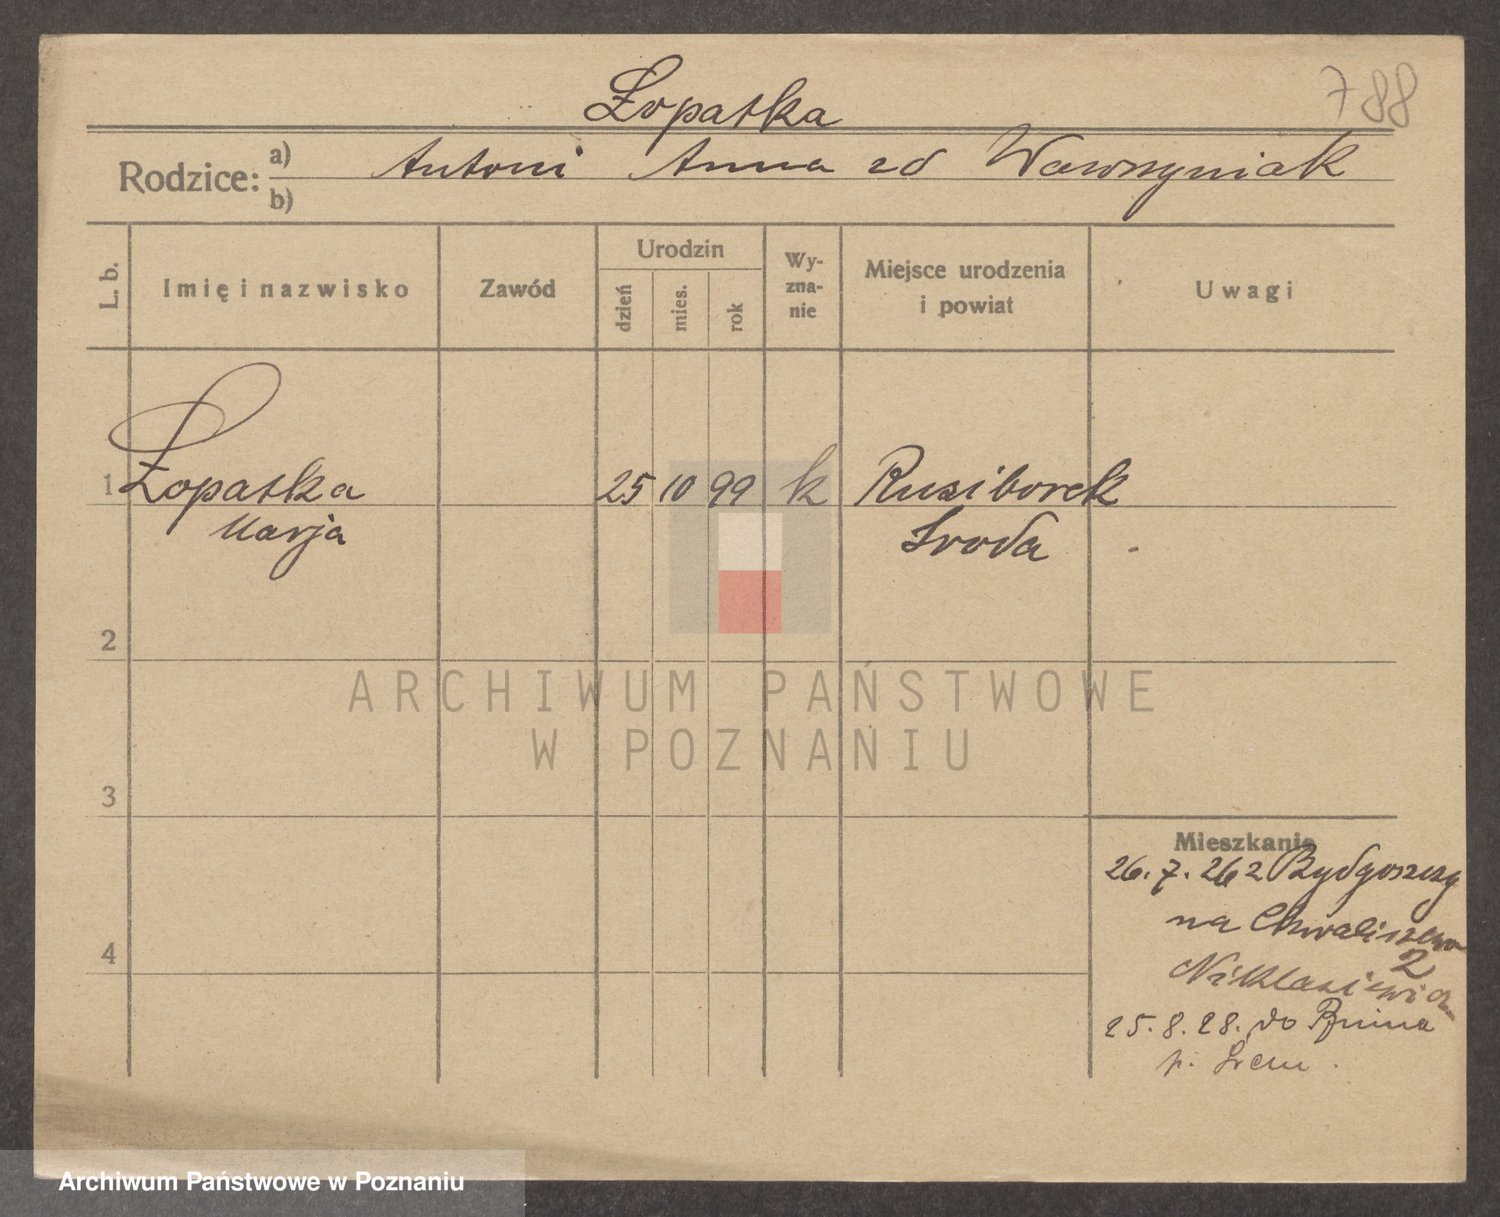 Łopatka
788
Rodzice: a) Antoni Anna zd Wawrzyniak
b)
L. b.
Imię i nazwisko
Zawód
Urodzin
dzień
mies.
rok
Wy-
zna-
nie
Miejsce urodzenia
i powiat
Uwagi
1 Łopatka 25 10 99 k Rusiborek
Marja Sroda
2
ARCHIWUM PAŃSTWOWE
W POZNANIU
3
Mieszkanie
26.7.26 z Bydgoszczy
na Chwaliszewo
2
4
25.8.28. do Bnina
p. Srem.
Archiwum Państwowe w Poznaniu